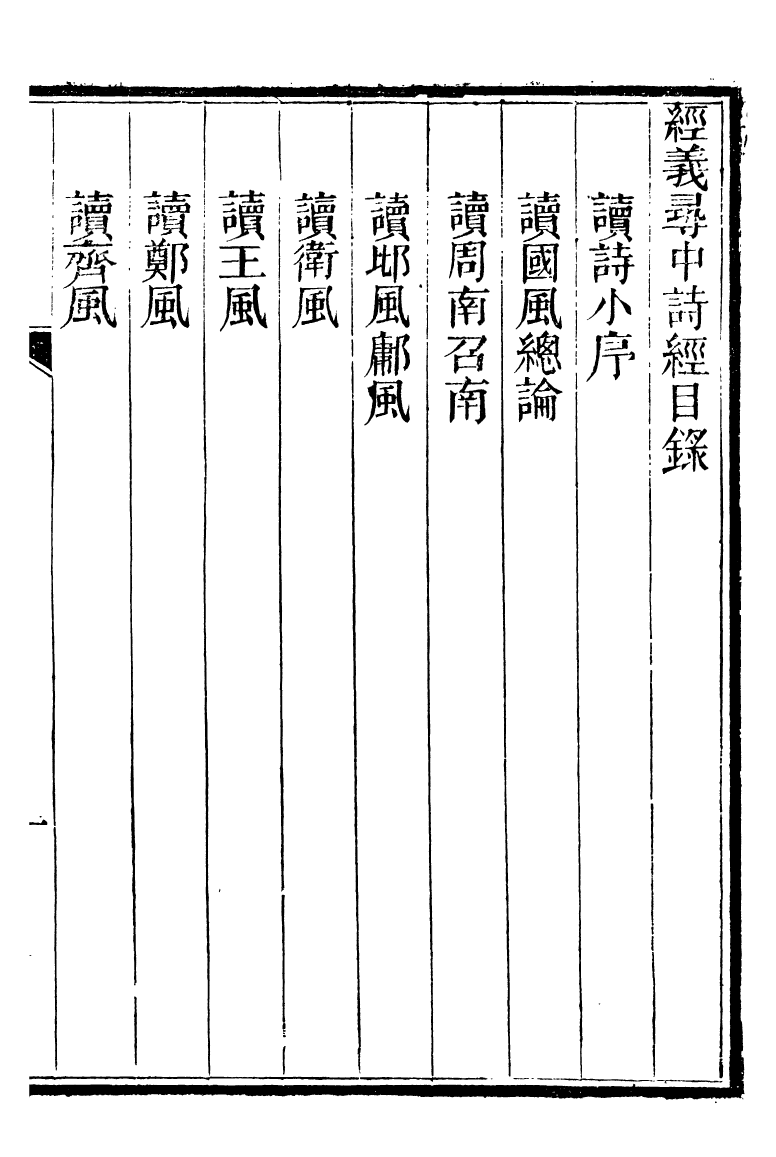 經義尋中詩經目錄
讀詩小序
讀國風總論
讀周南召南
讀邶風鄘風
讀衛風
讀王風
讀鄭風
讀齊風
一